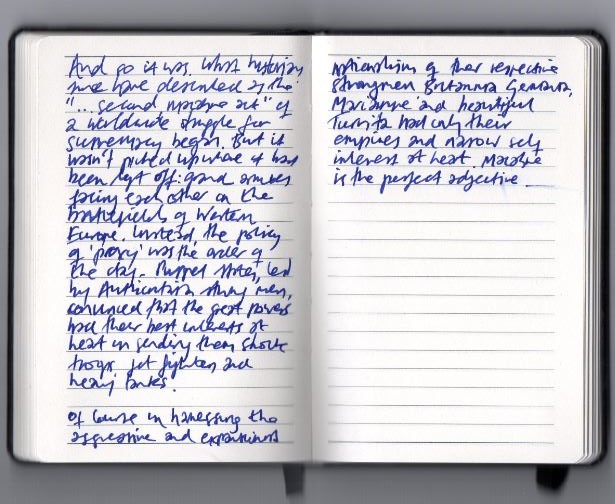 And so it was. What historians
since have described as the
"... second macabre act" of
a worldwide struggle for
supremacy began. But it
wasn't picked up where it had
been left off: grand armies
facing each other on the
battlefields of Western
Europe. Instead, the policy
of 'proxy' was the order of
the day. Puppet states, led
by Authoritarian strong men,
convinced that the great powers
had their best interests at
heart in sending them shock
troops, jet fighters and
heavy tanks.
Of course in harnessing the
aggressive and expansionist
nationalism of their respective
strongmen Britannia, Germania,
Marianne and beautiful
Turrita had only their
empires and narrow self
interest at heart. Macabre
is the perfect adjective